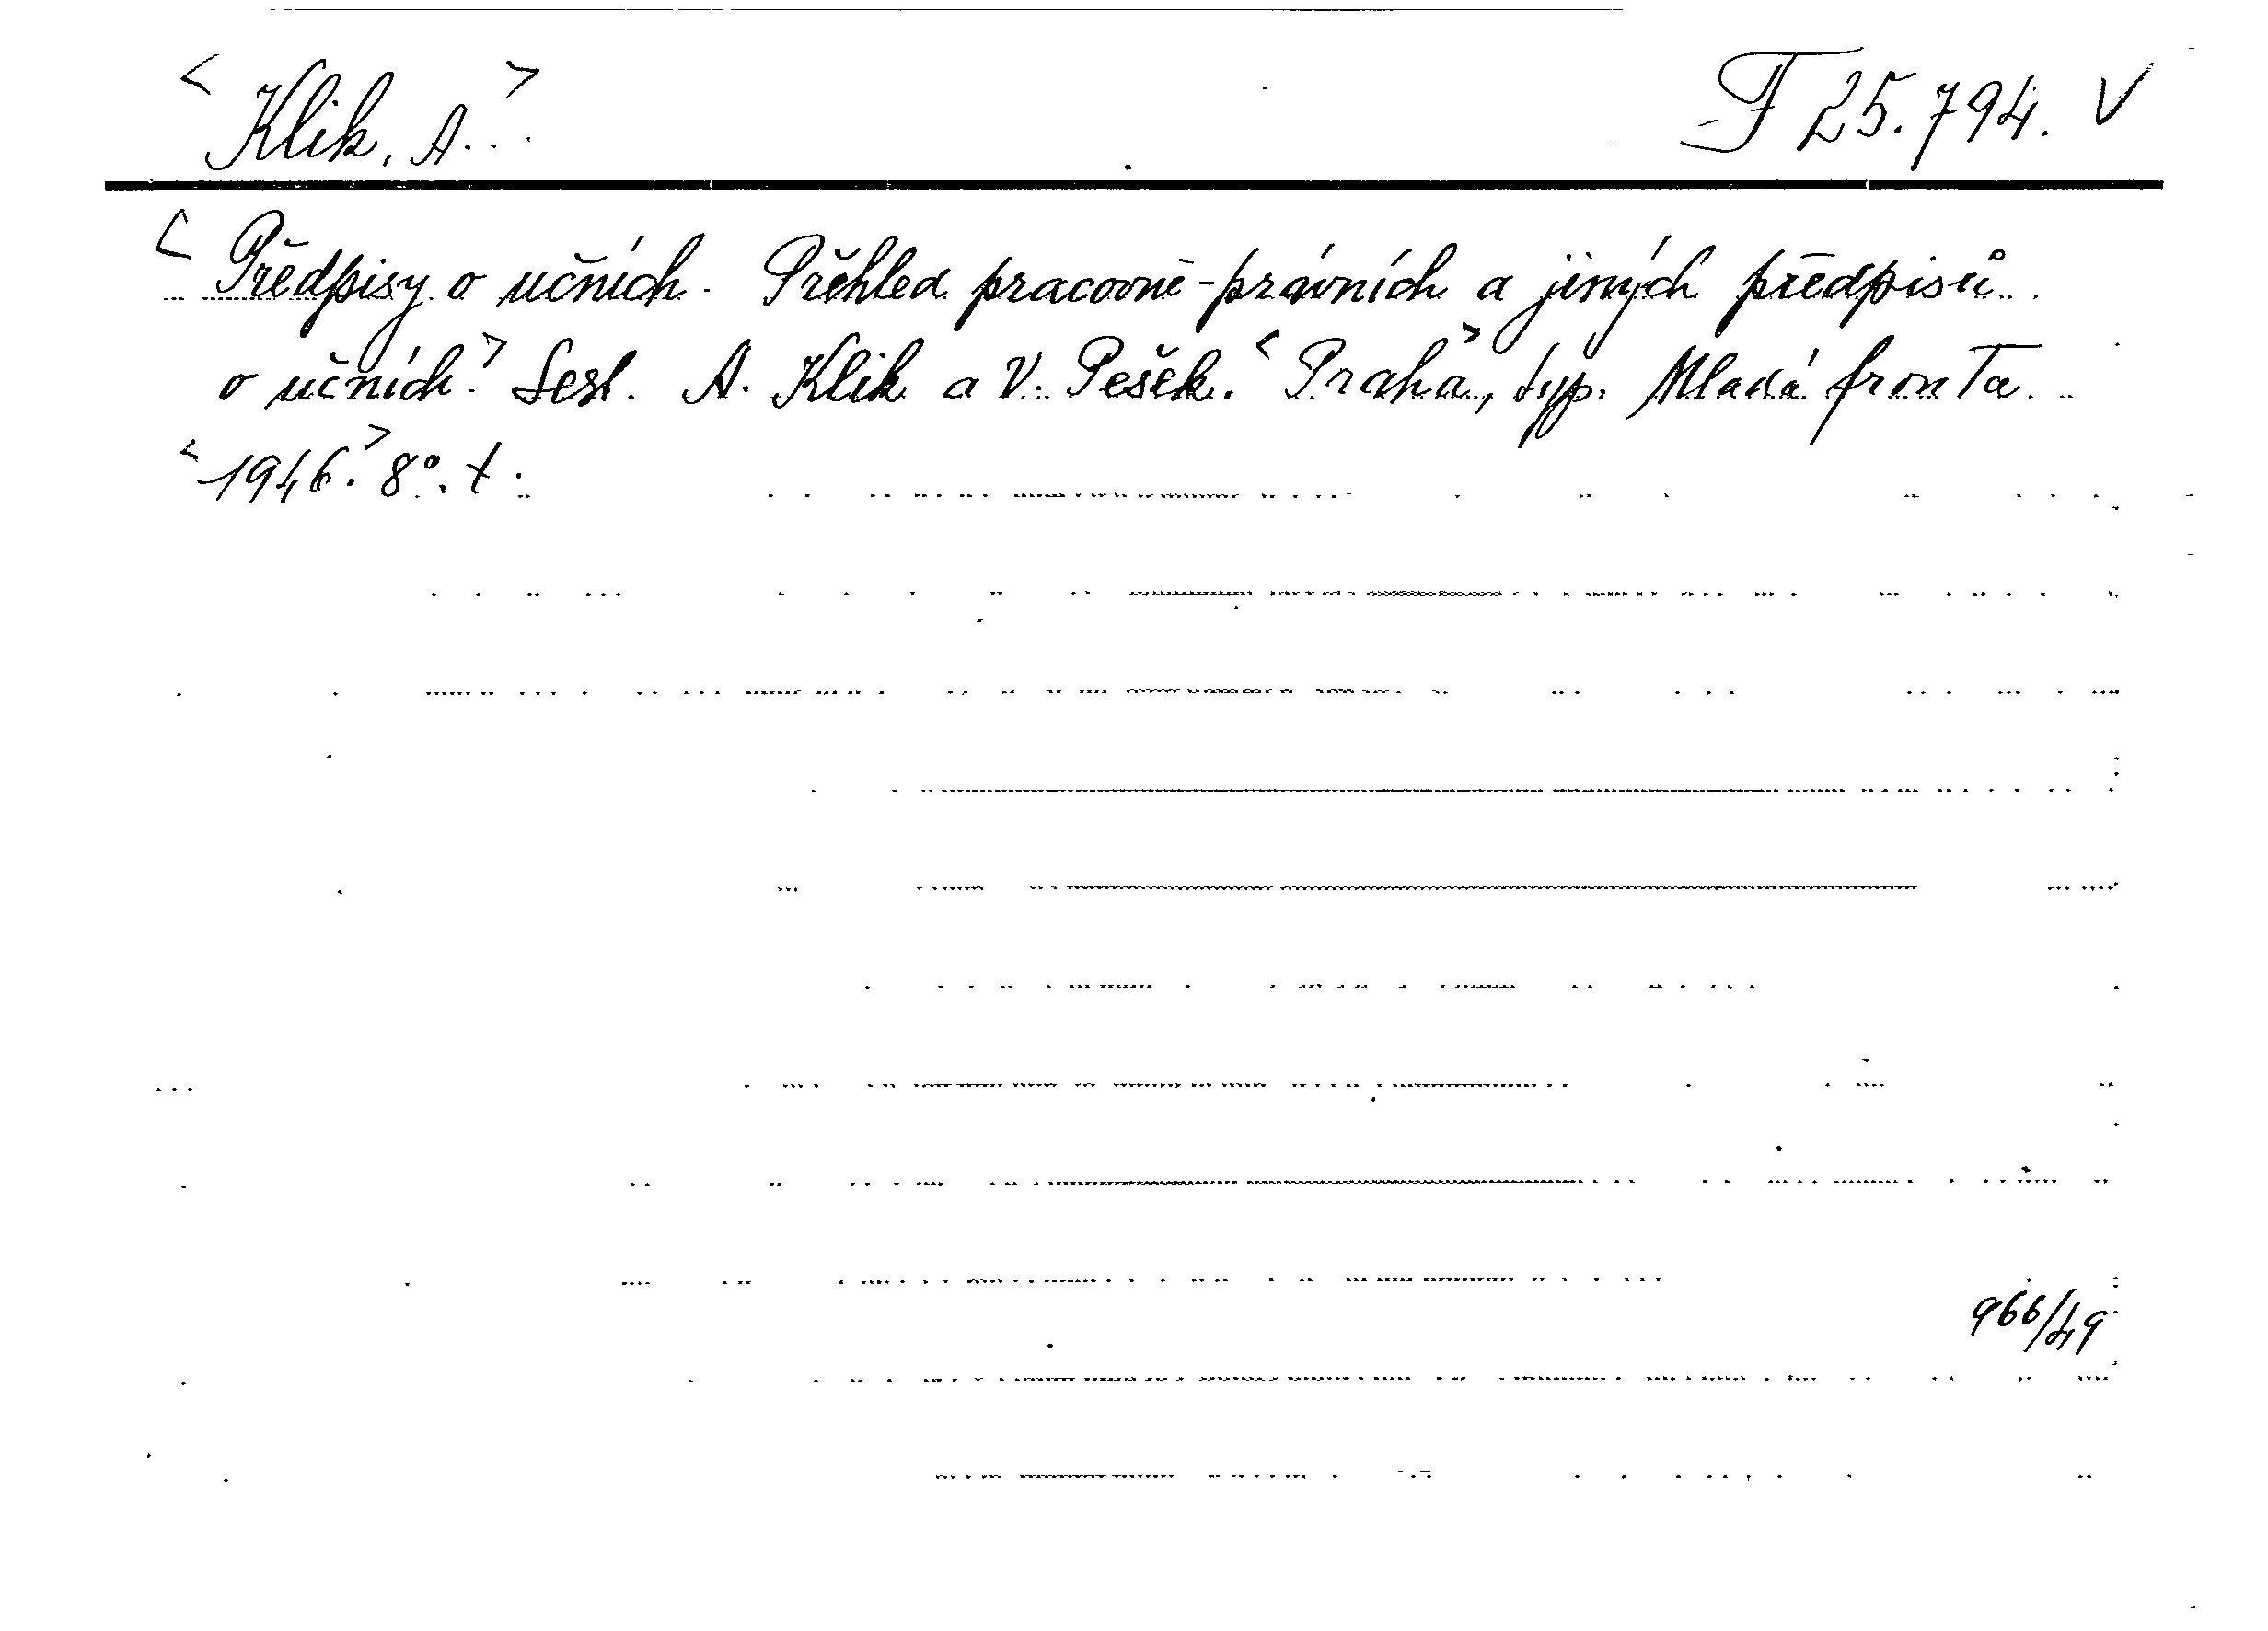 <Klik, A.> F 25.794. V
<Předpisy o učních. Přehled pracovně-právních a jiných předpisů
o učních.> Sest. A. Klik a V. Pešek. <Praha>, typ. Mladá fronta
<1946.> 8°. t.
966/49